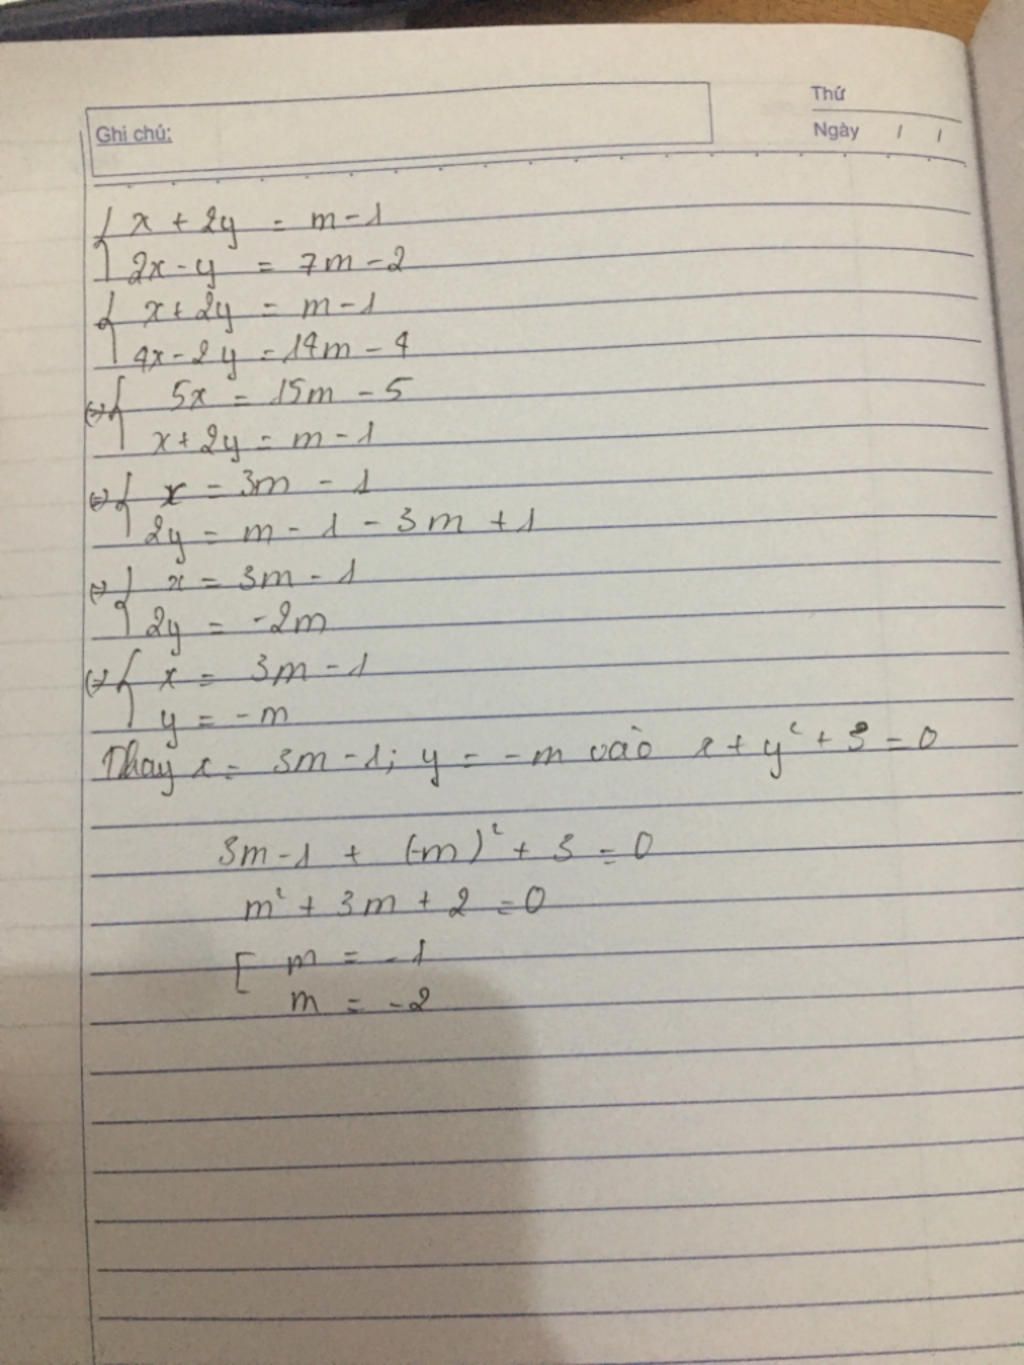 Thứ
Ghi chú:
Ngày / /
{ x + 2y = m - 1
2x - y = 7m - 2
{ x + 2y = m - 1
4x - 2y = 14m - 4
(=) { 5x = 15m - 5
x + 2y = m - 1
(=) { x = 3m - 1
2y = m - 1 - 3m + 1
(=) { x = 3m - 1
2y = -2m
(=) { x = 3m - 1
y = -m
Thay x = 3m - 1; y = -m vào x + y² + 3 = 0
3m - 1 + (-m)² + 3 = 0
m² + 3m + 2 = 0
[ m = -1
m = -2